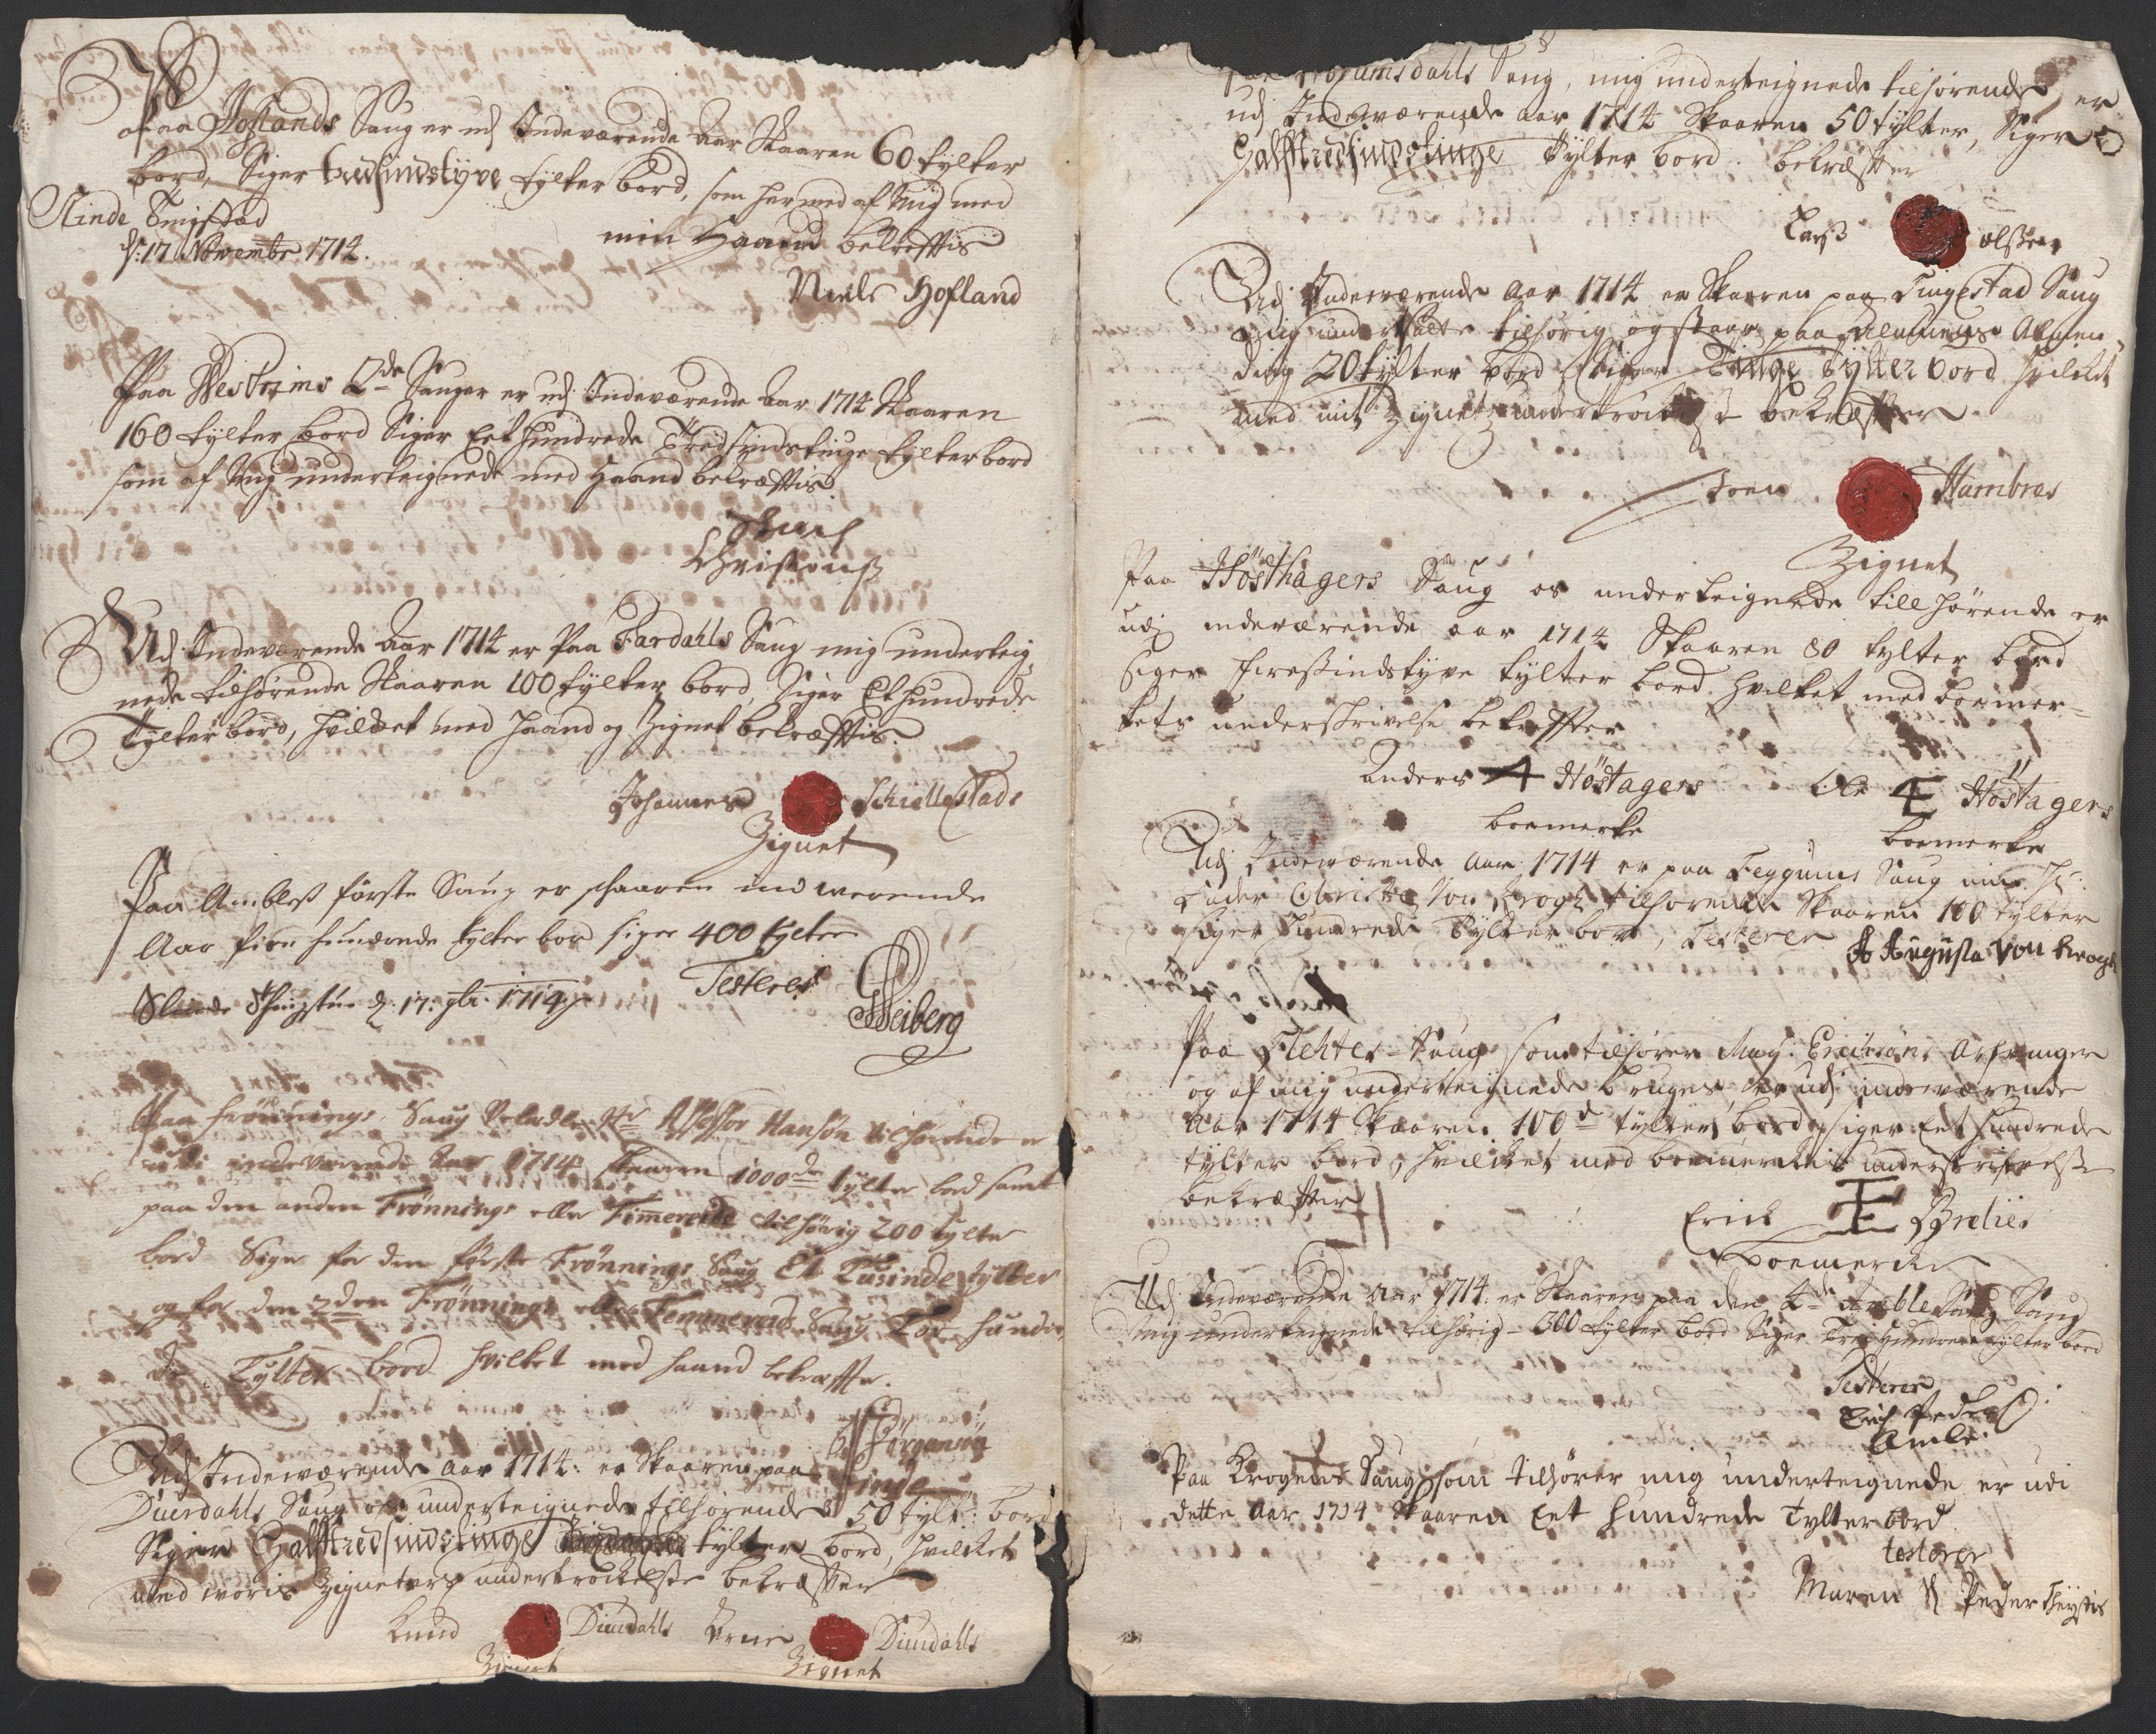 Paa Hoflands Saug er udj Indeværende Aar Skaaren 60 tylter
bord, Siger tredsindstÿve tylter bord, som hermed af Mig med
min Haand bekreftis
Slinde Tingstad
d: 17 Novembr 1714.
Niels Hofland
Paa Westrims 2de Sauger er udj Indeværende Aar 1714 Skaaren
160 tylter bord Siger Eet Hundrede Tredsindstiuge tylter bord
som af Mig underteignede med Haand bekræftis
Christens
Udj Indeværende Aar 1714 er Paa Fardahls Saug mig underteig,
nede tilhørende Skaaren 100 tylter bord, Siger Et Hundrede
Tylter bord, hvilket med Haand og Zignet bekræftis.
Johannes Schiellestads
Zignet
Paa Ambless første Saug er skaaren ind werende
Aar fire hunderede tylter bor siger 400 tylter
Testerer
Slinde d: 17: 9br: 1714
Leiberg
Paa Frønnings Saug Velædle Hr Assessor Hansøn tilhørende er
udi indeværende Aar 1714 skaaren 1000de tylter bord samt
paa den anden Frønnings eller Timereide tilhørig 200 tylter
bord Siger for den første Frønnings Saug Et Tusinde tylter
og for den 2den Frønnings eller Femmereid Saug Toe hundre
de Tylter bord hvilket med haand bekræfter.
Jørgensøn
Udj Indewærende Aar 1714: er Skaaren paa
Diurdahls Saug os underteignede tilhørende 50 tylt: bord
Siger Halftredsindstiuge tylter bord, hvilket
med woris Zigneters undertrockelsse bekræfter
Knud Diurdahls Diurdahls
Zignet Zignet
Saug, mig underteignede tilhørende er
udj Indeværende Aar 1714 Skaaren 50 tylter, Siger
Halftredsindstinge Tylter bord. bekræfter
Larss Olssen
Udj Indeværende Aar 1714 er Skaaren paa Tingestad Saug
Mig tilhørig og staar paa Almen,
ding 20 tylter bord Siger Tiuge Tylter bord hvilket
med mit Zignets undertrøckelse bekræfter
Joen Hambres
Zignet
Paa Høsthagers Saug os underteignede tillhørende er
udj indeværende aar 1714 Skaaren 80 tylter bord
siger firessindstyve tylter bord hvilket med boemer=
kets underskrivelse bekrefter
Anders Høstagers Ole Høstagers
boemerke boemerke
Udj Indeværende Aar 1714 er paa Feygums Saug min Sl:
Fader Christ: Von Krogh tilhørende Skaaren 100 tylter
siger Hundrede Tylter bord, Testerer
A Augusta Von Krogh
Paa Flehtes Saug som tilhører May: Ericksøns Arfvinger
og af mig underteignede bruges, er udj indeværende
Aar 1714 Skaaren 100d tylter bord, siger Eet hundrede
tylter bord, hvilcket med boemerckis underskrifvelse
bekræfter
Erick Brehies
boemercke
Udj Indeværende Aar 1714: er Skaaren paa den 2de Amble Saug
Mig underteignede tilhørig - 300 tylter bord Siger Trei Hundrede tylter bord
Testerer
Erich Peders
Amble
Paa Krogens Saug som tilhører mig underteignede er udi
dette Aar 1714 skaaren Eet hundrede Tylter bord
testerer
Maren Sl Peder